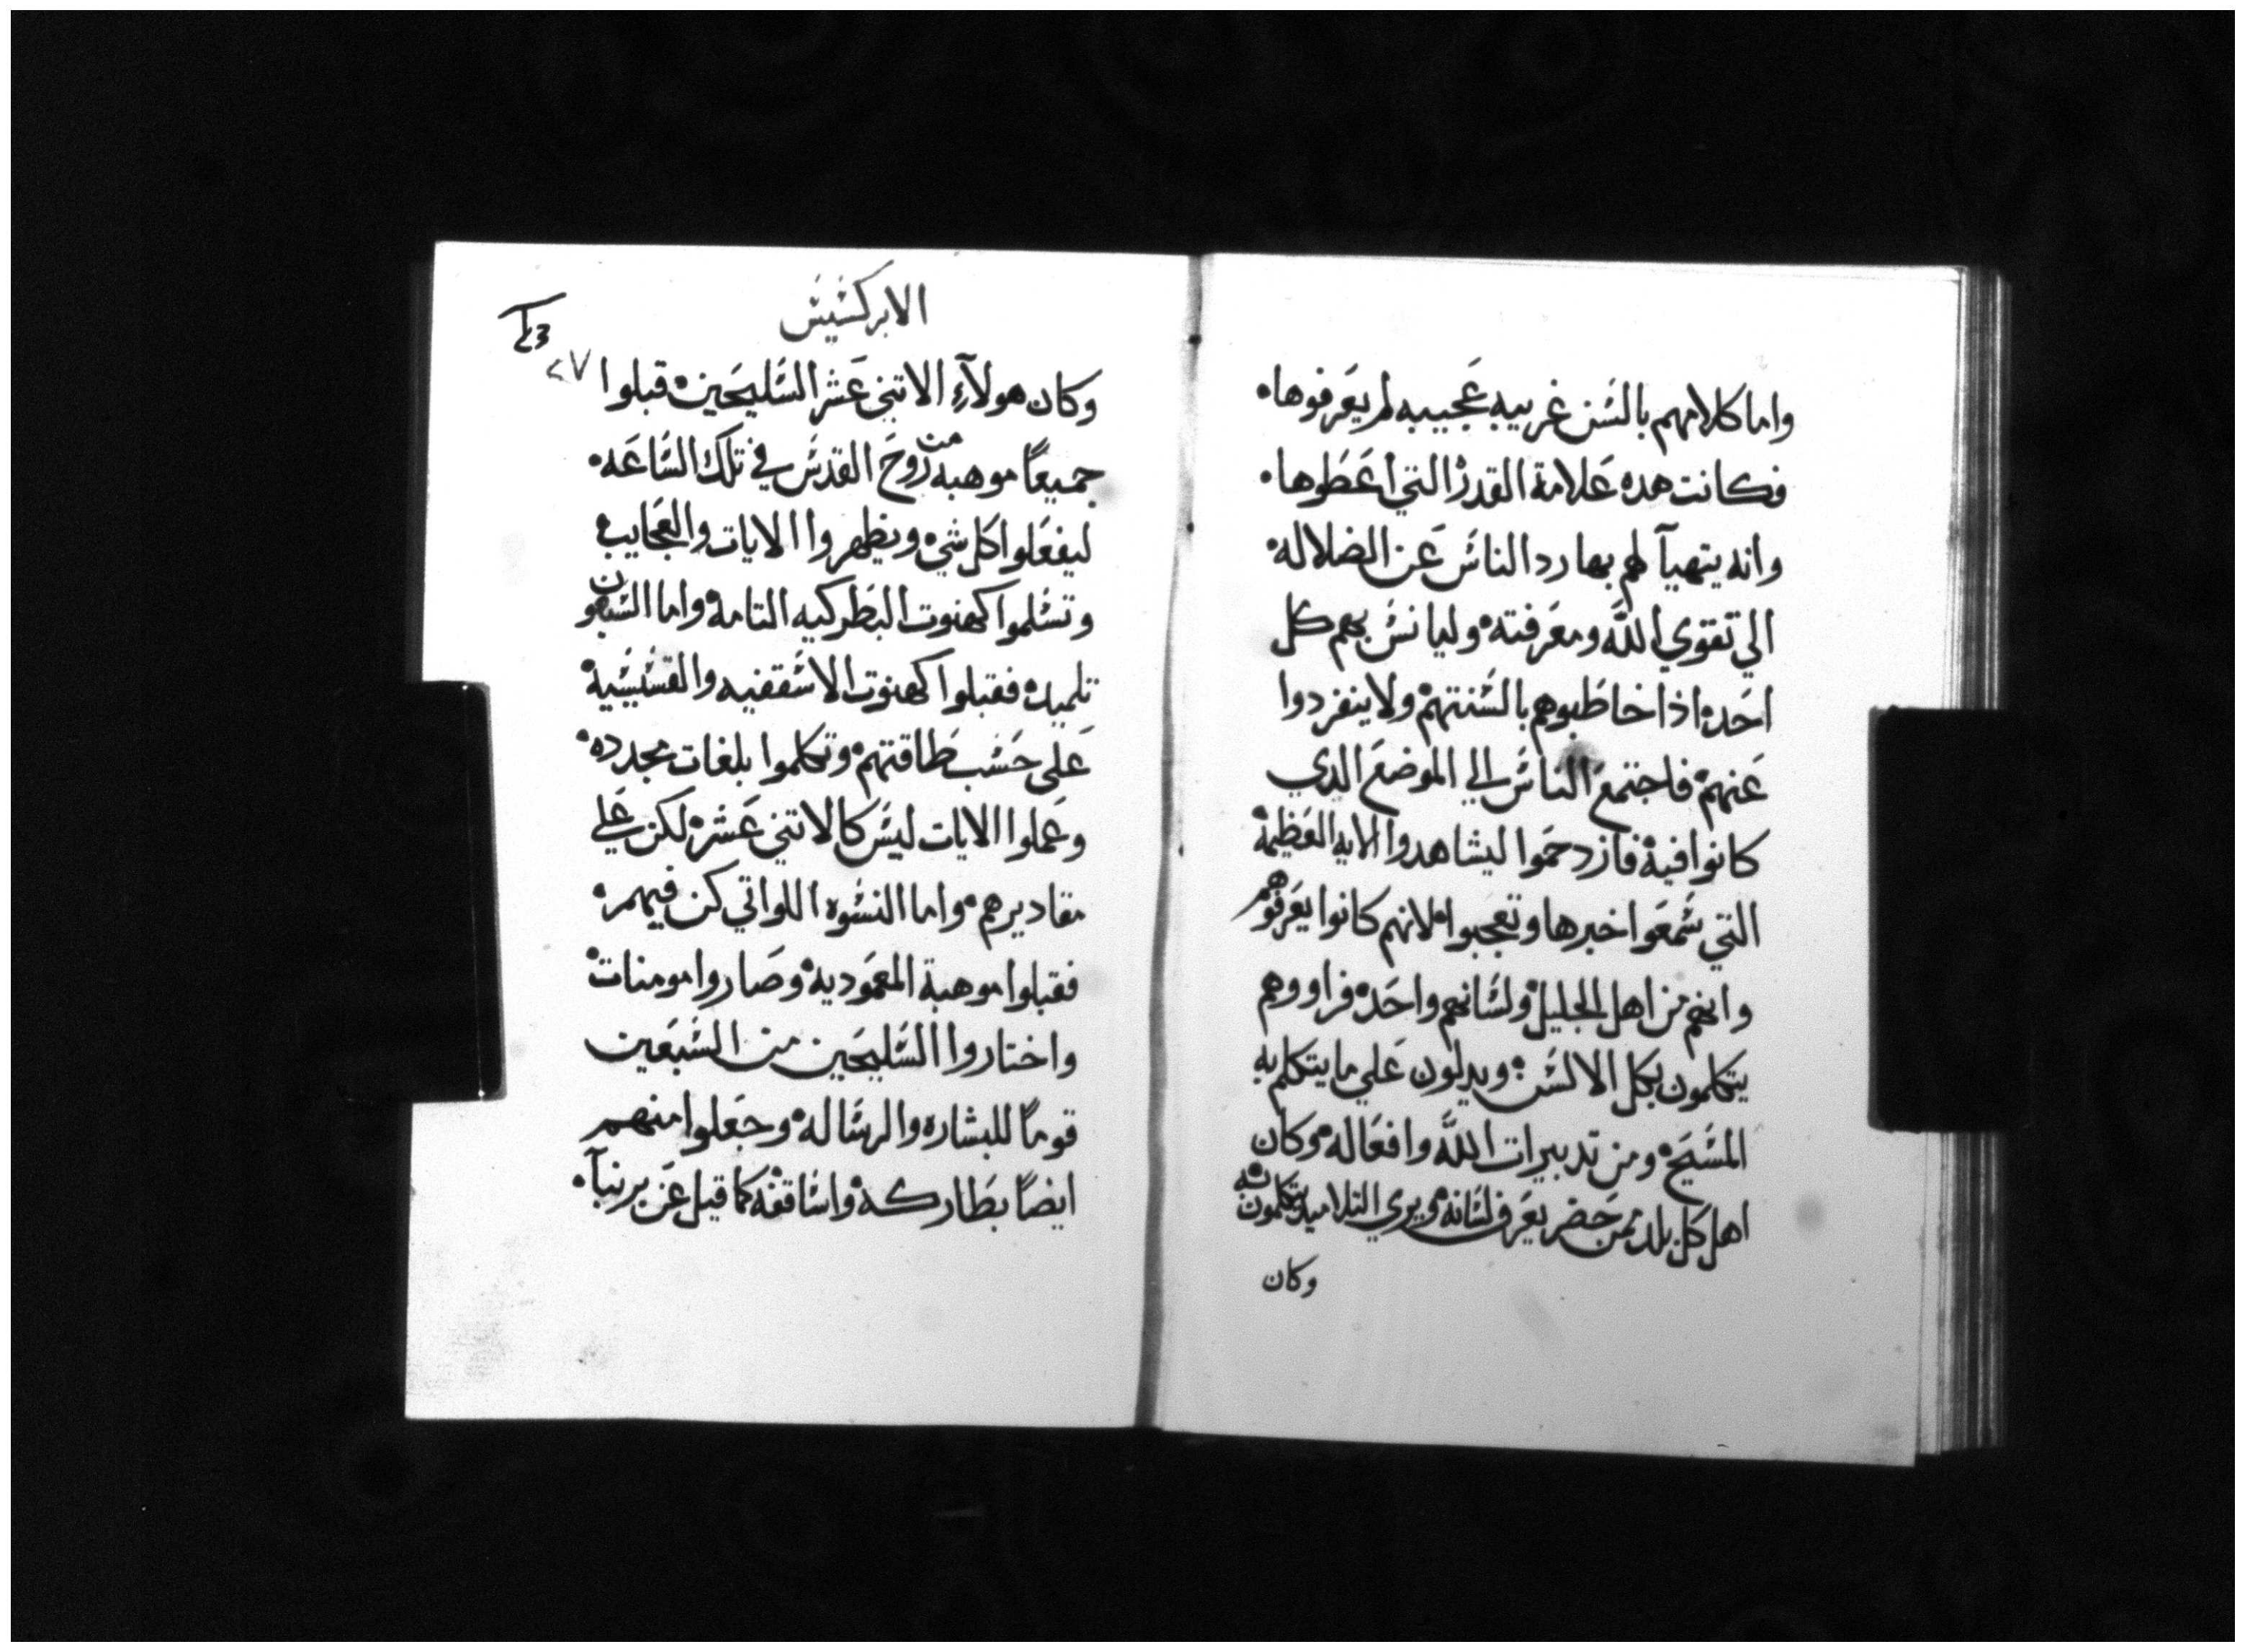 واما كلامهم بالسن غريبه عجيبه لم يعرفوها
فكانت هده علامة القدرة التي اعطوها
وانه يتهيآ لهم بها رد الناس عن الضلاله
الي تقوي الله ومعرفته وليانس بهم كل
احد اذا خاطبوهم بالسنتهم ولا ينفردوا
عنهم فاجتمع الناس الي الموضع الدي
كانوا فيه فازدحموا ليشاهدوا الايه العظيمة
التي سمعوا خبرها وتعجبوا لانهم كانوا يعرفوهم
وانهم من اهل الجليل ولسانهم واحد فراووهم
يتكلمون بكل الالسن ويدلون علي ما يتكلم به
المسيح ومن تدبيرات الله وافعاله وكان
اهل كل بلد ممن حضر يعرف لسانه ويري التلاميد يتكلمون به
وكان
الابركسيس
٢٧
وكان هولآء الاتني عشر السليحين قبلوا
جميعاً موهبه من روح القدس في تلك الساعه
ليفعلوا كل شي ويظهروا الايات والعجايب
وتسلموا كهنوت البطركيه التامه واما السبعون
تلميد فقبلوا كهنوت الاسقفيه والقسيسية
علي حسب طاقتهم وتكلموا بلغات مجدده
وعملوا الايات ليس كالاتني عشر لكن علي
مقاديرهم واما النسوه اللواتي كن فيهم
فقبلوا موهبة المعموديه وصاروا مومنات
واختاروا السليحين من السبعين
قوماً للبشاره والرساله وجعلوا منهم
ايضاً بطاركه واساقفه كما قيل عن برنبآ